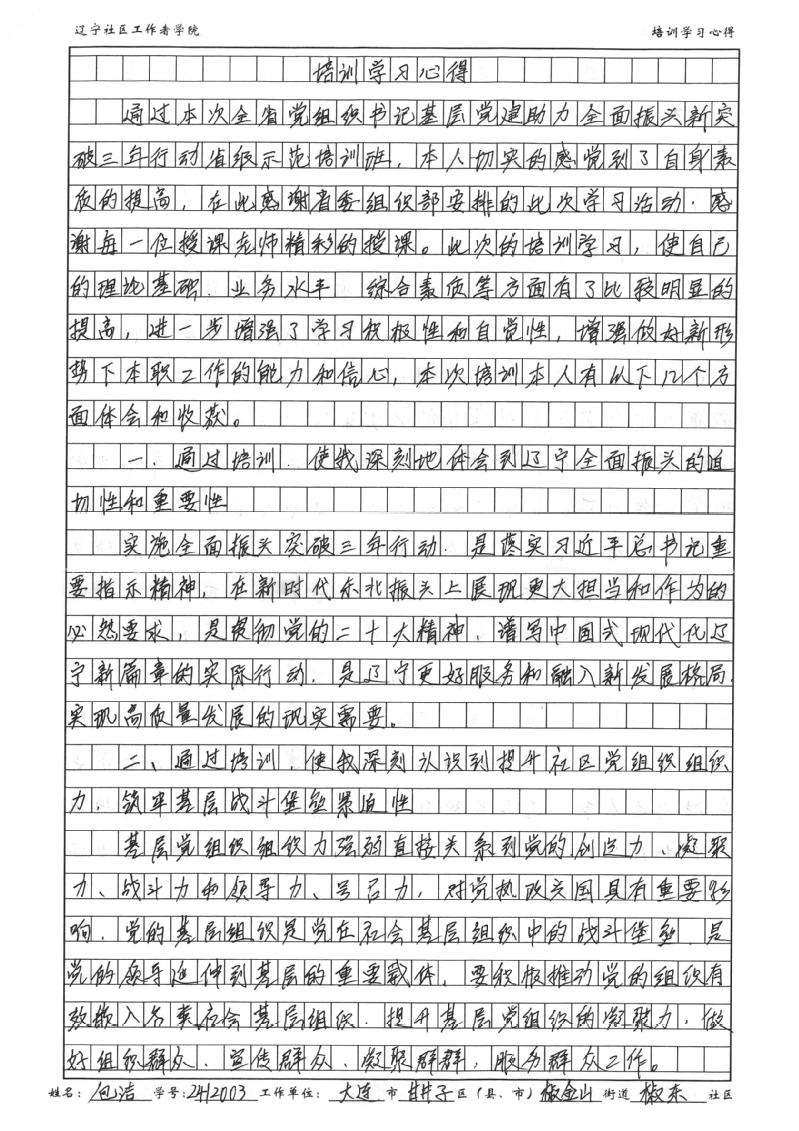 辽宁社区工作者学院 培训学习心得
培训学习心得
通过本次全省党组织书记基层党建助力全面振兴新突
破三年行动省级示范培训班，本人切实的感觉到了自身素
质的提高，在此感谢省委组织部安排的此次学习活动.感
谢每一位授课老师精彩的授课。此次的培训学习，使自己
的理论基础.业务水平 综合素质等方面有了比较明显的
提高，进一步增强了学习积极性和自觉性，增强做好新形
势下本职工作的能力和信心，本次培训本人有以下几个方
面体会和收获。
一.通过培训.使我深刻地体会到辽宁全面振兴的迫
切性和重要性
实施全面振兴突破三年行动.是落实习近平总书记重
要指示精神，在新时代东北振兴上展现更大担当和作为的
必然要求，是贯彻党的二十大精神、谱写中国式现代化辽
宁新篇章的实际行动.是辽宁更好服务和融入新发展格局.
实现高质量发展的现实需要。
二、通过培训.使我深刻认识到提升社区党组织组织
力.筑牢基层战斗堡垒紧迫性
基层党组织组织力强弱直接关系到党的创造力、凝聚
力、战斗力和领导力、号召力，对党执政兴国具有重要影
响.党的基层组织是党在社会基层组织中的战斗堡垒 是
党的领导延伸到基层的重要载体，要积极推动党的组织有
效嵌入各类社会基层组织.提升基层党组织的凝聚力，做
好组织群众、宣传群众、凝聚群群，服务群众工作。
姓名：包洁 学号：2412003 工作单位：大连市甘井子区（县、市）椒金山街道椒东社区